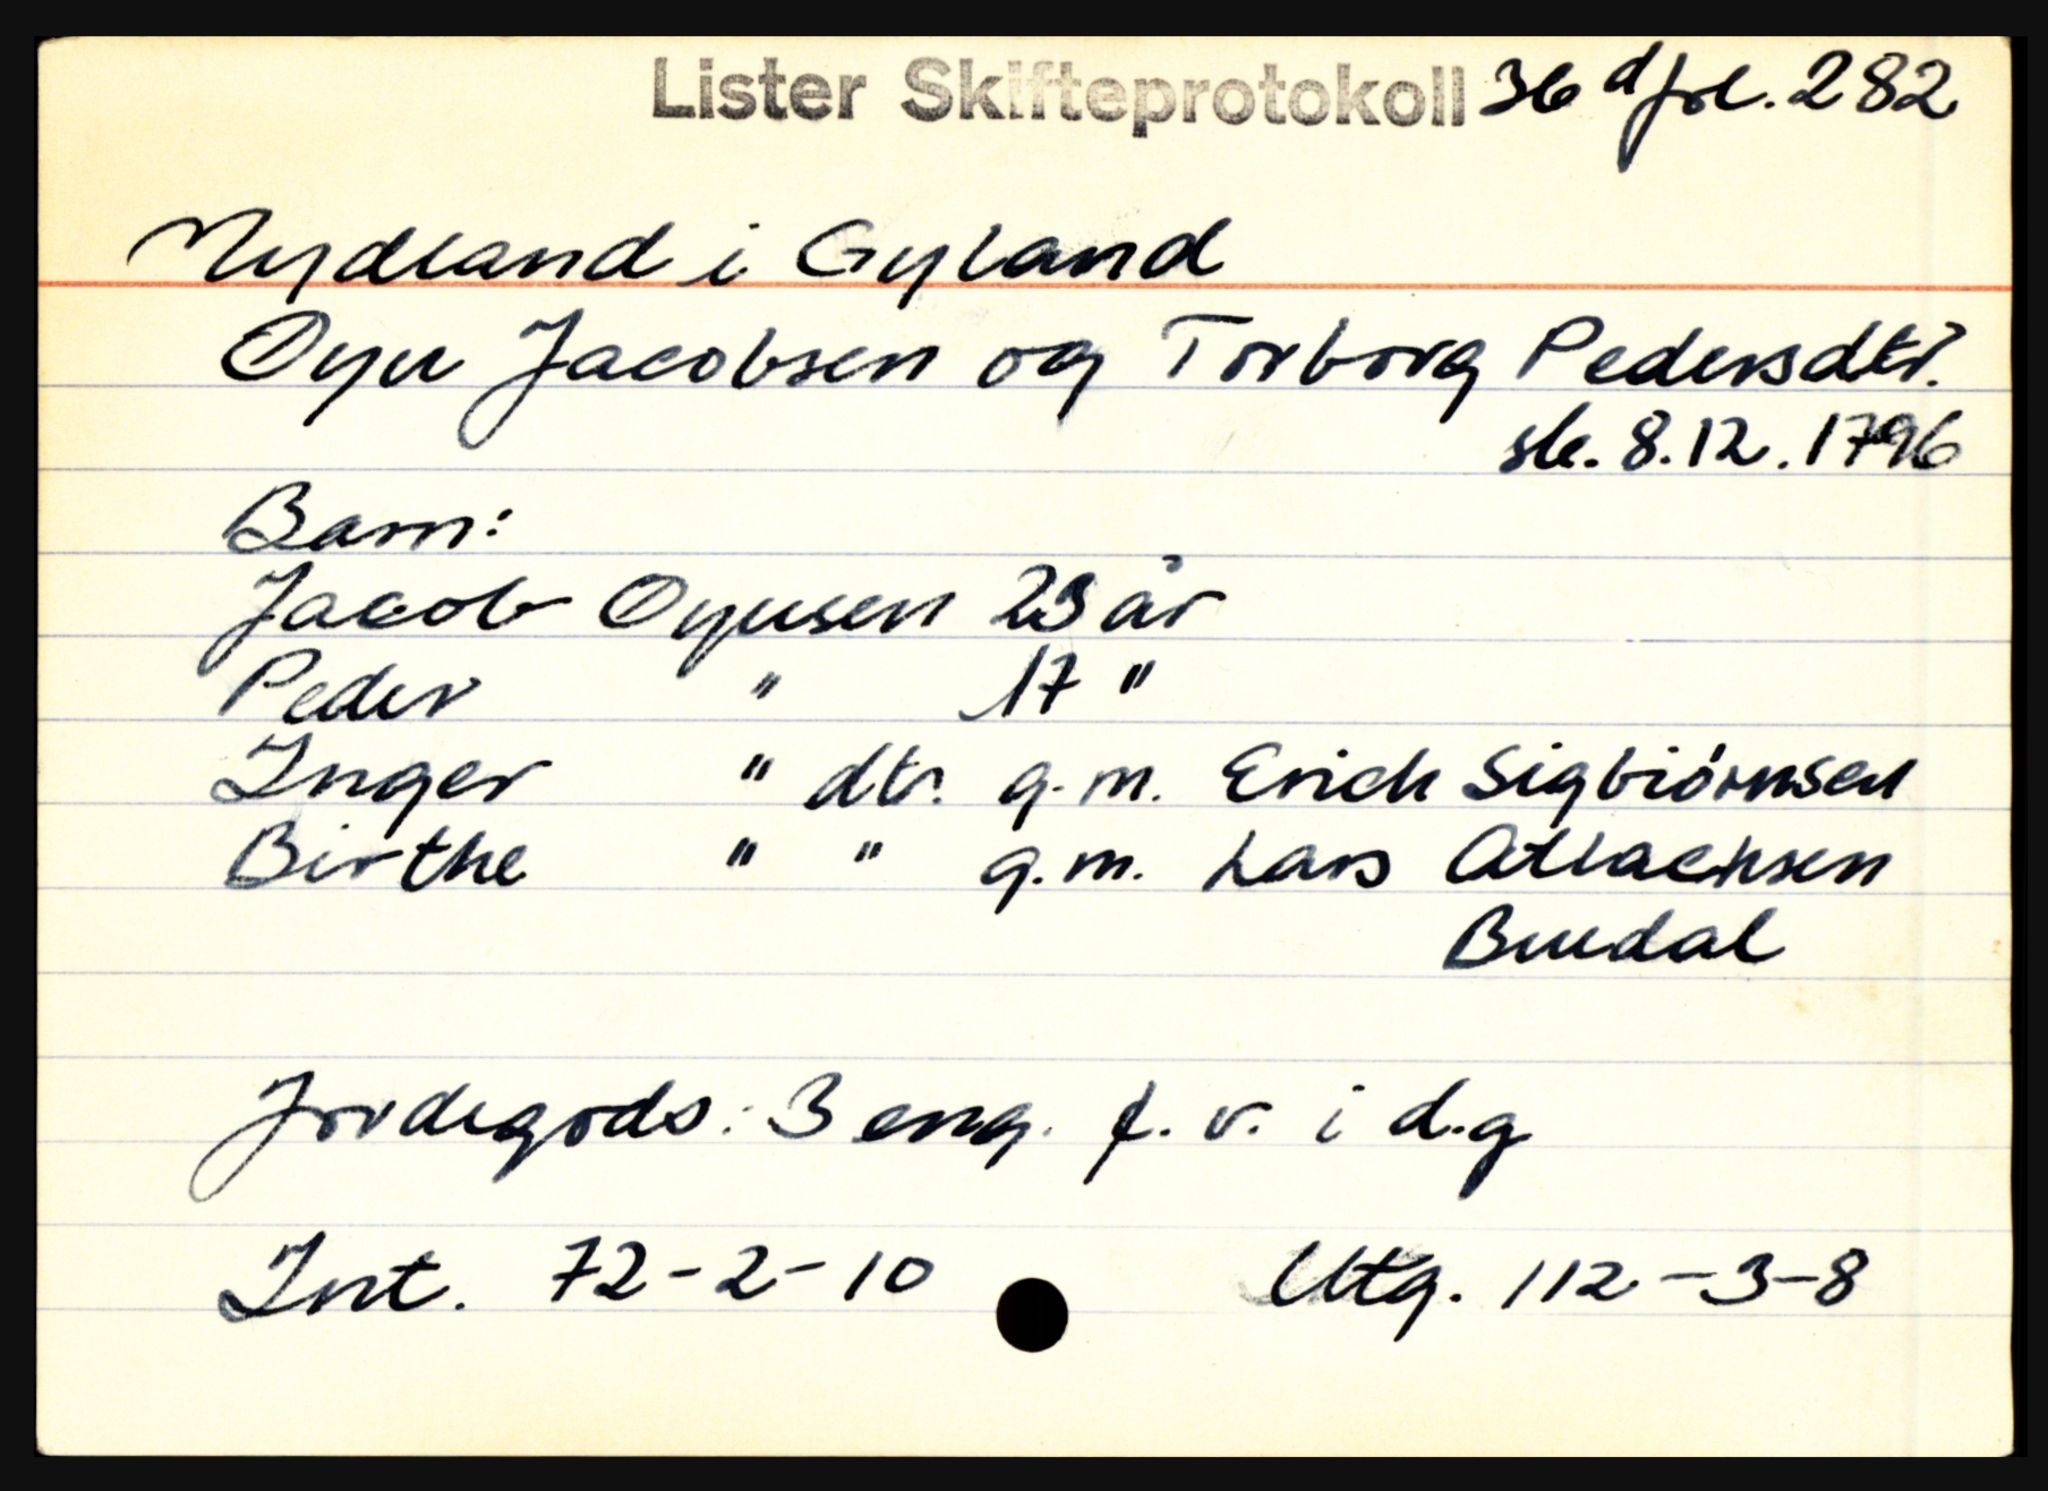 Lister Skifteprotokoll 36 d fol. 282
Nydland i Gyland
Oyu Jacobsen og Torborg Pedersdtr.
sk. 8.12.1796
Barn:
Jacob Oyusen 23 år
Peder " 17 "
Inger " dtr. g.m. Erich Sigbiörnsen
Birthe " " g.m. Lars Atlachsen
Buudal
Jordegods: 3 eng. f. v. i d.g
Int. 72-2-10 Utg. 112-3-8